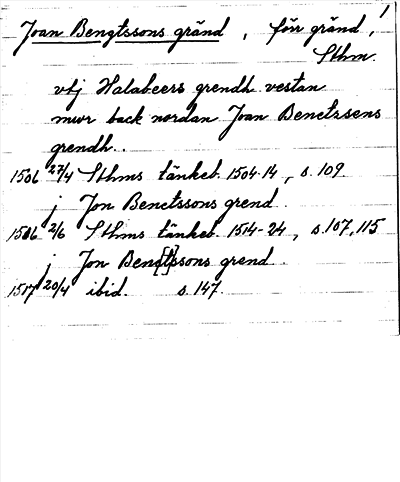 Joan Bengtssons gränd, förr gränd, 1
Sthm.
vtj Halabeers grendh vestan
mwr back nordan Joan Benctzsens
grendh.
1506 27/4 Sthms tänkeb. 1504-14, s. 109
j Jon Benctssons grend
1516 2/6 Sthms tänkeb. 1514-24, s. 107, 115
j Jon Benc[t]ssons grend.
1517 20/4 ibid. s. 147.